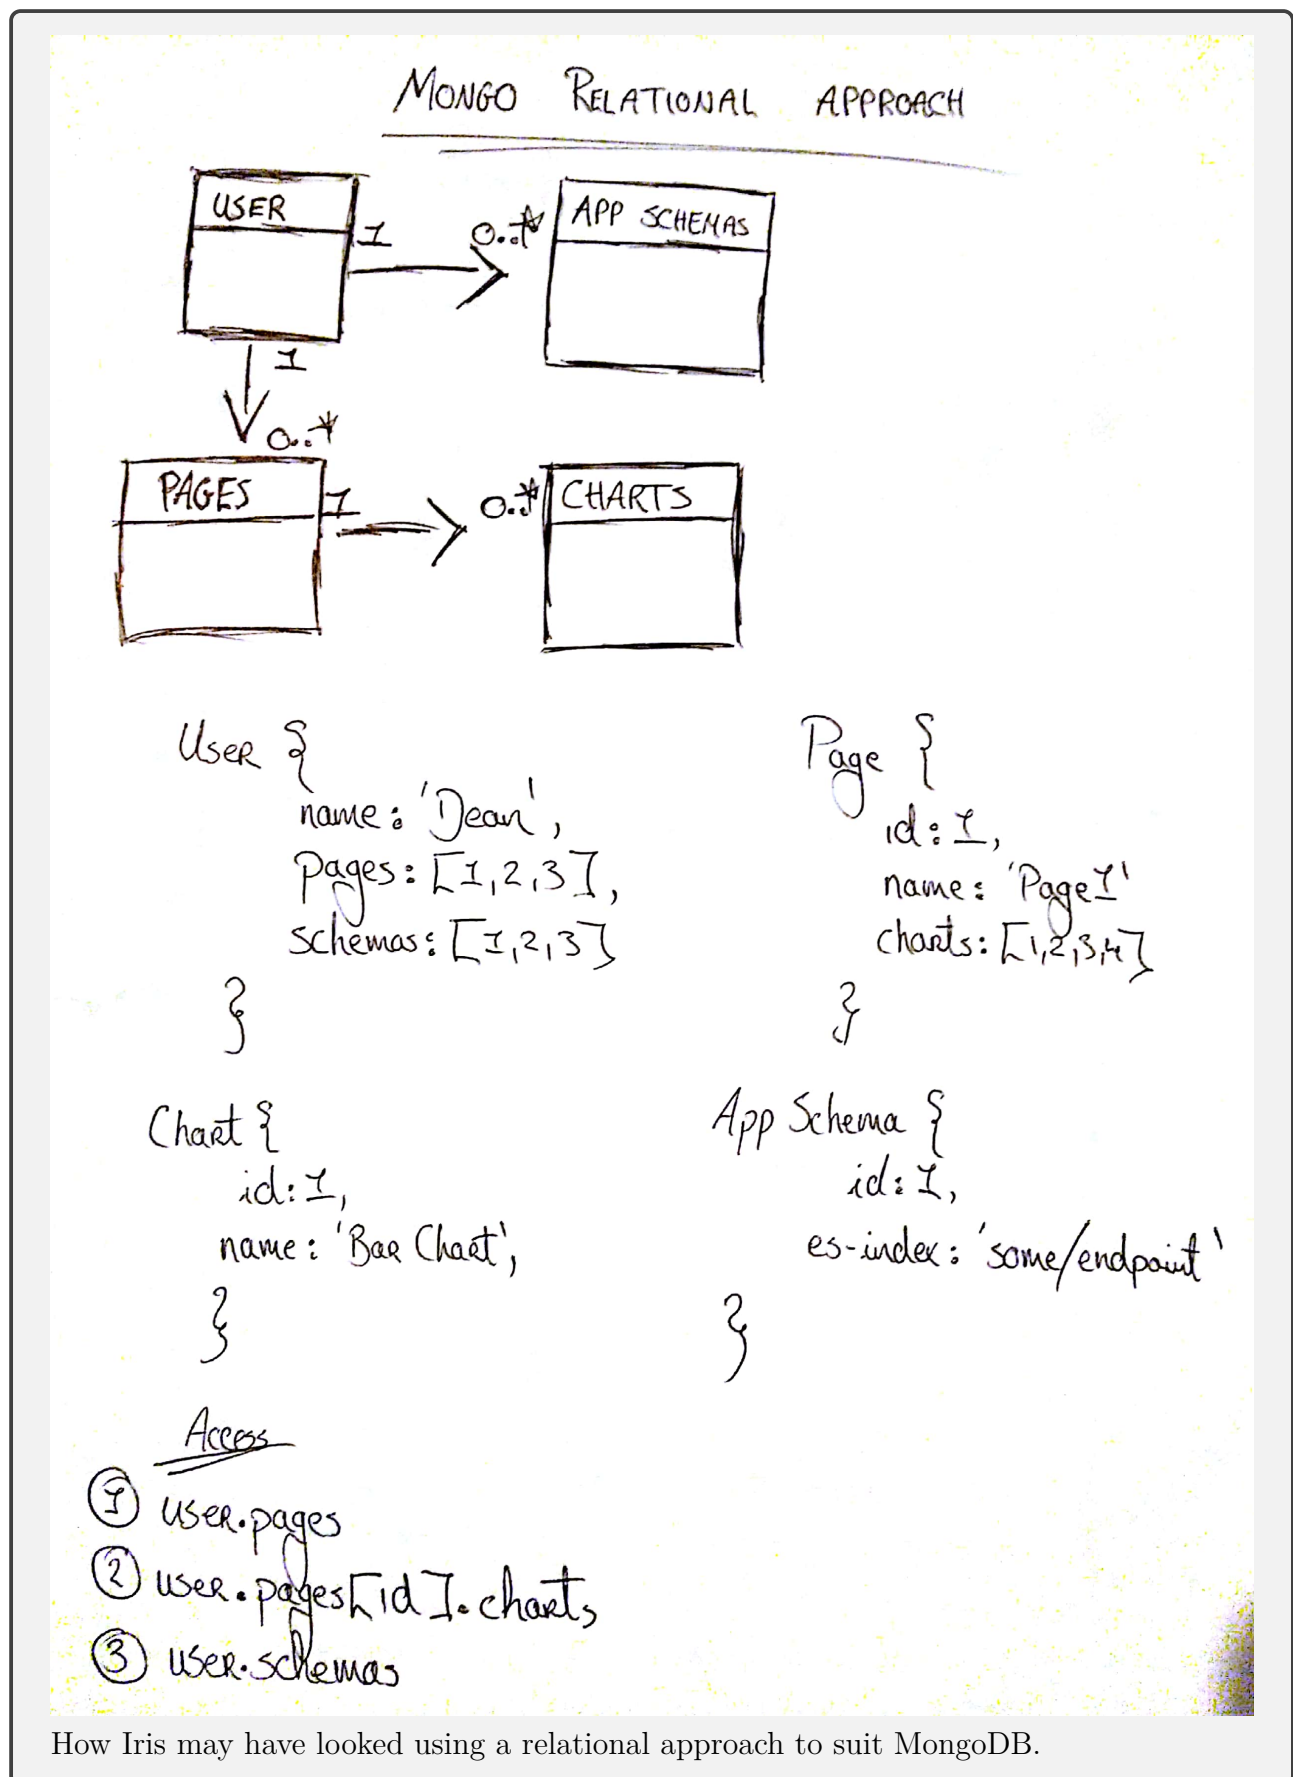 MONGO RELATIONAL APPROACH
USER
1
0..*
APP SCHEMAS
1
0..*
PAGES
1
0..*
CHARTS
User {
name: 'Dean',
pages: [1,2,3],
schemas: [1,2,3]
}
Page {
id: 1,
name: 'Page1'
charts: [1,2,3,4]
}
Chart {
id: 1,
name: 'Bar Chart',
}
App Schema {
id: 1,
es-index: 'some/endpoint'
}
Access
1 user.pages
2 user.pages[id].charts
3 user.schemas
How Iris may have looked using a relational approach to suit MongoDB.